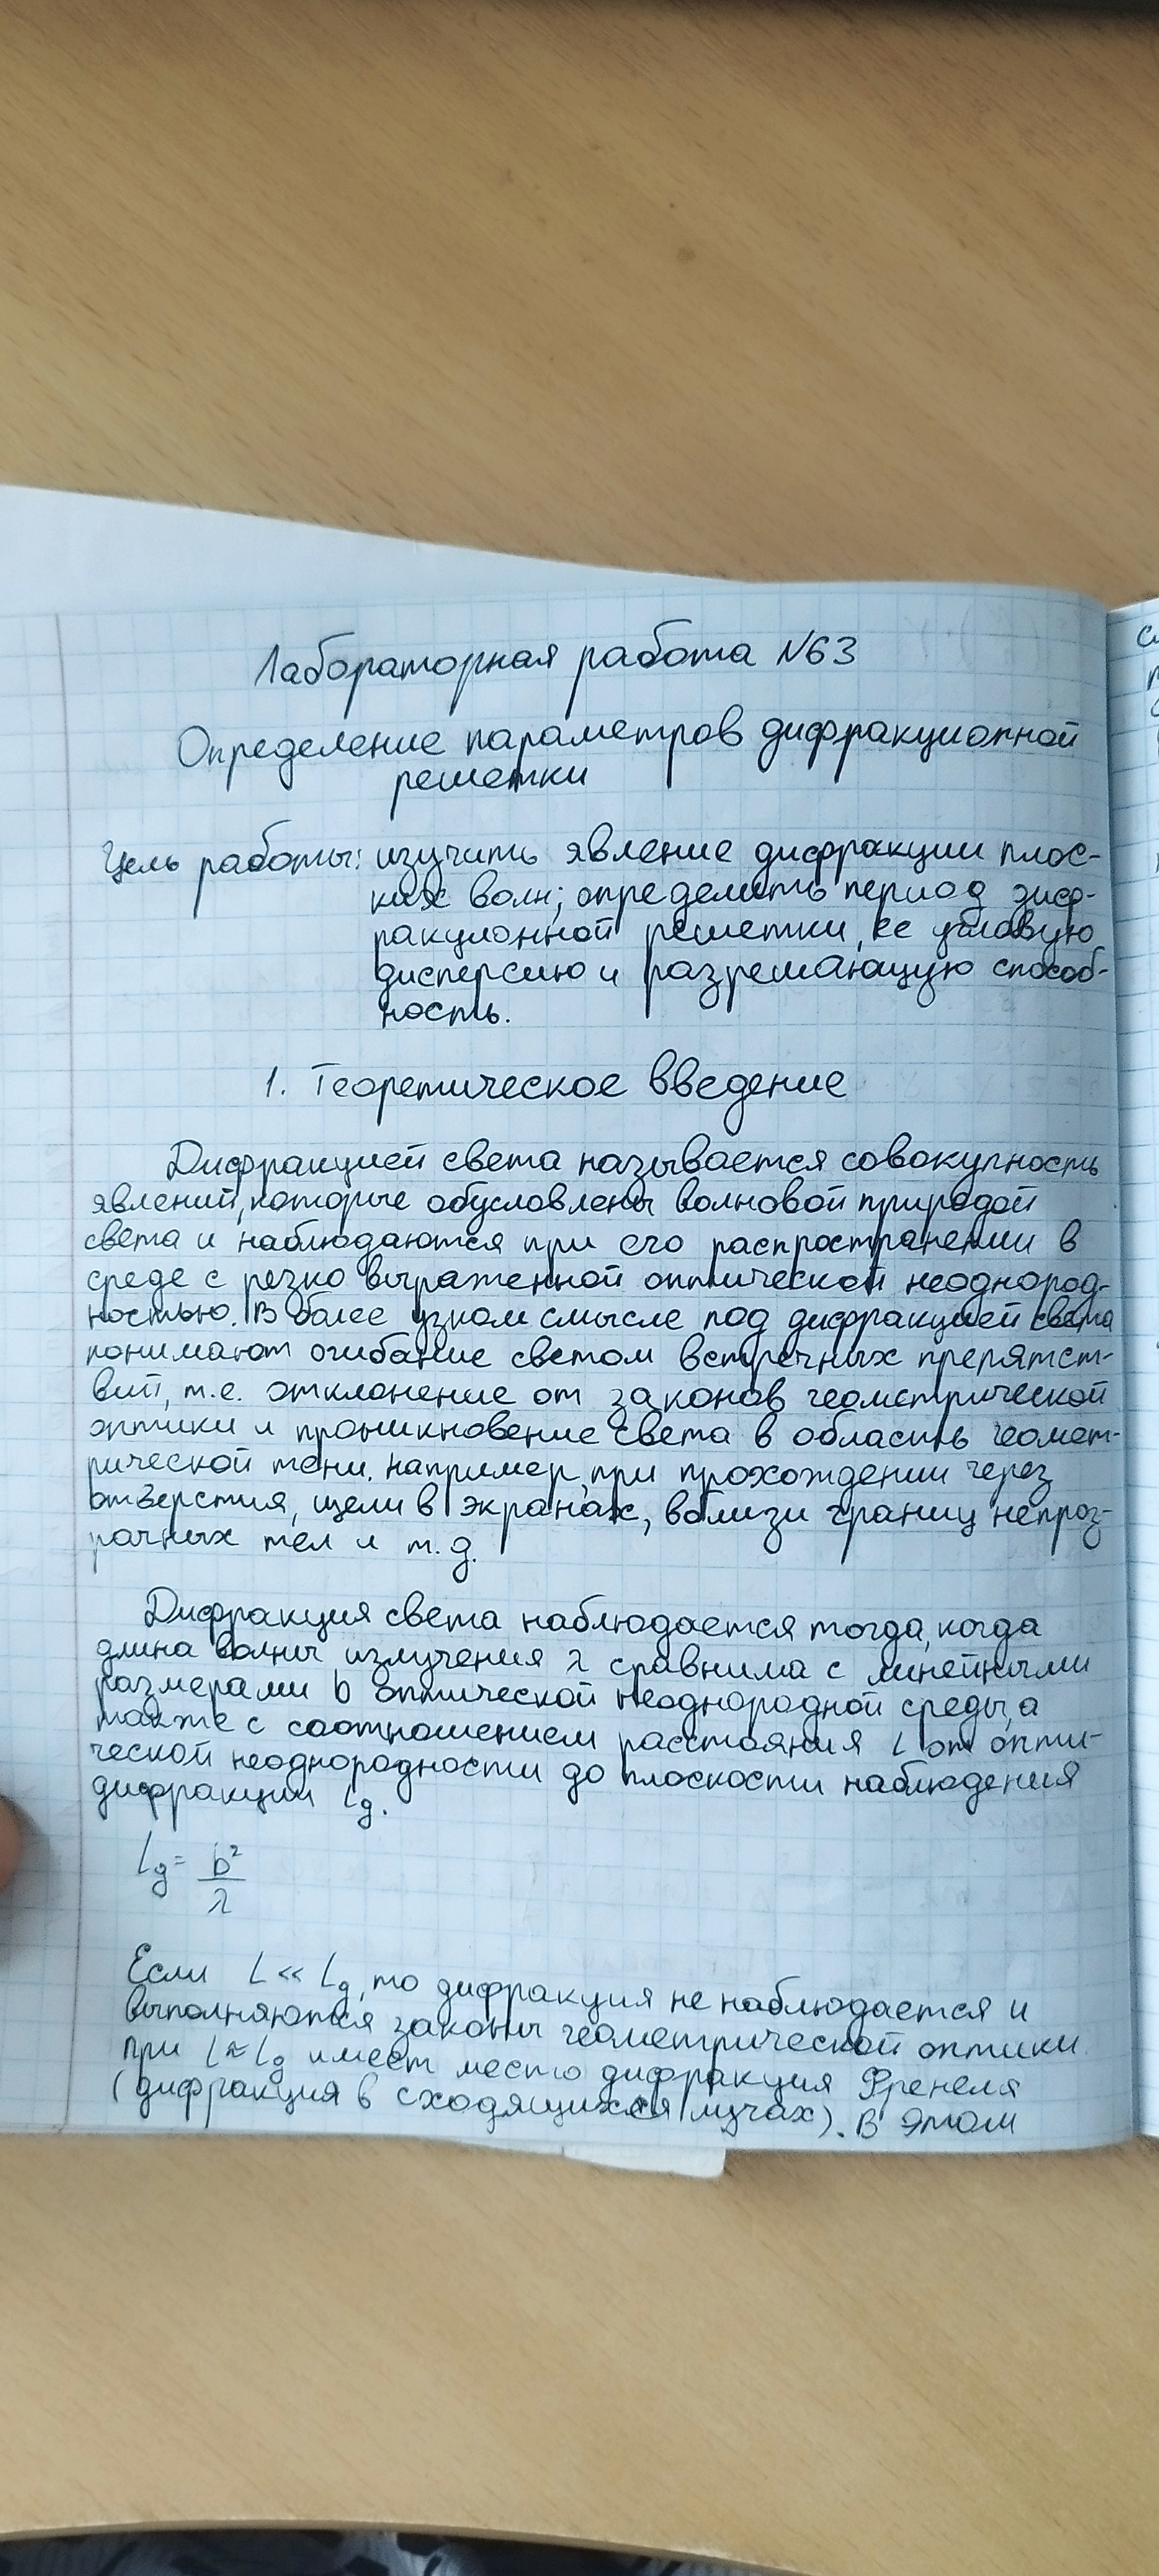 Лабораторная работа №63
Определение параметров дифракционной
решетки
Цель работы: изучить явление дифракции плос-
ких волн; определить период диф-
ракционной решетки, ее угловую
дисперсию и разрешающую способ-
ность.
1. Теоретическое введение
Дифракцией света называется совокупность
явлений, которые обусловлены волновой природой
света и наблюдаются при его распространении в
среде с резко выраженной оптической неоднород-
ностью. В более узком смысле под дифракцией света
понимают огибание светом встречных препятст-
вий, т.е. отклонение от законов геометрической
оптики и проникновение света в область геомет-
рической тени. Например, при прохождении через
отверстия, щели в экранах, вблизи границ непроз-
рачных тел и т.д.
Дифракция света наблюдается тогда, когда
длина волны излучения λ сравнима с линейными
размерами b оптической неоднородной среды, а
также с соотношением расстояния L от опти-
ческой неоднородности до плоскости наблюдения
дифракции Lg.
Lg = b²/λ
Если L << Lg, то дифракция не наблюдается и
выполняются законы геометрической оптики.
При L ≈ Lg имеет место дифракция Френеля
(дифракция в сходящихся лучах). В этом